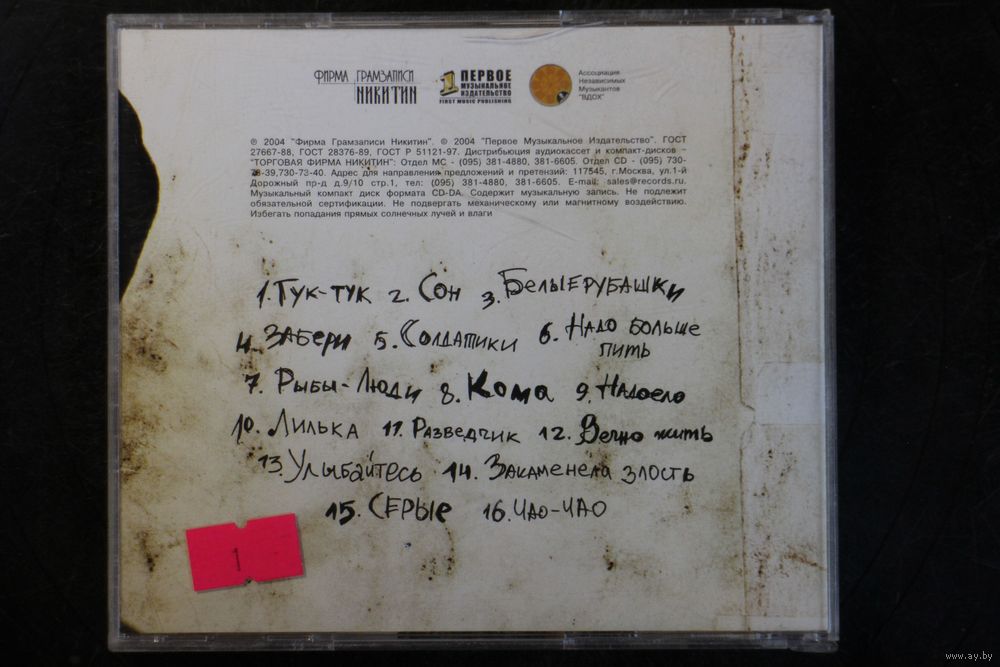 ФИРМА ГРАМЗАПИСИ
НИКИТИН
1 ПЕРВОЕ
МУЗЫКАЛЬНОЕ
ИЗДАТЕЛЬСТВО
FIRST MUSIC PUBLISHING
Ассоциация
Независимых
Музыкантов
"ВДОХ"
℗ 2004 "Фирма Грамзаписи Никитин". © 2004 "Первое Музыкальное Издательство". ГОСТ
27667-88, ГОСТ 28376-89, ГОСТ Р 51121-97. Дистрибьюция аудиокассет и компакт-дисков –
"ТОРГОВАЯ ФИРМА НИКИТИН": Отдел МС - (095) 381-4880, 381-6605. Отдел CD - (095) 730-
-39,730-73-40. Адрес для направления предложений и претензий: 117545, г.Москва, ул.1-й
Дорожный пр-д д.9/10 стр.1, тел: (095) 381-4880, 381-6605. E-mail: sales@records.ru.
Музыкальный компакт диск формата CD-DA. Содержит музыкальную запись. Не подлежит
обязательной сертификации. Не подвергать механическому или магнитному воздействию.
Избегать попадания прямых солнечных лучей и влаги
1. Тук-тук 2. Сон 3. Белые рубашки
4. Забери 5. Солдатики 6. Надо больше
пить
7. Рыбы-Люди 8. Кома 9. Надоело
10. Лилька 11. Разведчик 12. Вечно жить
13. Улыбайтесь 14. Закаменела злость
15. Серые 16. Чао-чао
1
www.ay.by